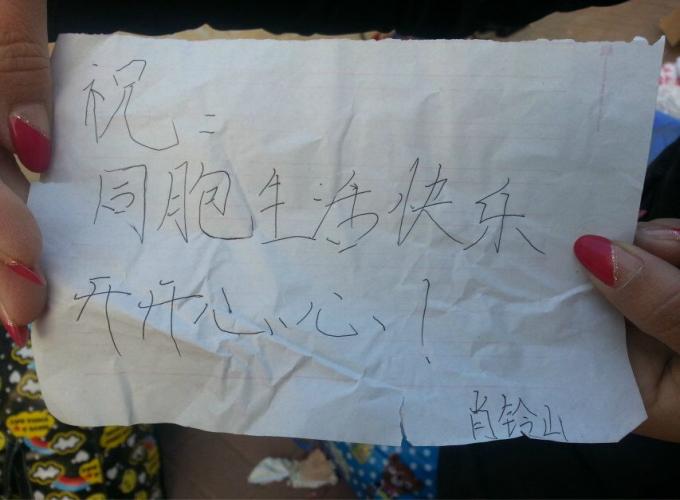 祝：
同胞生活快乐
开开心心！
肖铃山